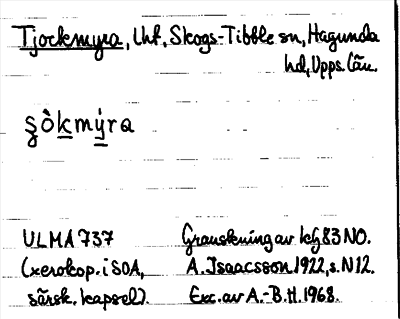 Tjockmyra, Lht, Skogs-Tibble sn, Hagunda
hd, Upps. län.
şò̀kmýra
ULMA 737
(xerokop. i SOA,
särsk. kapsel).
Granskning av kbl 83 NO.
A. Isaacsson 1922, s. N12.
Exc. av A.-B. H. 1968.